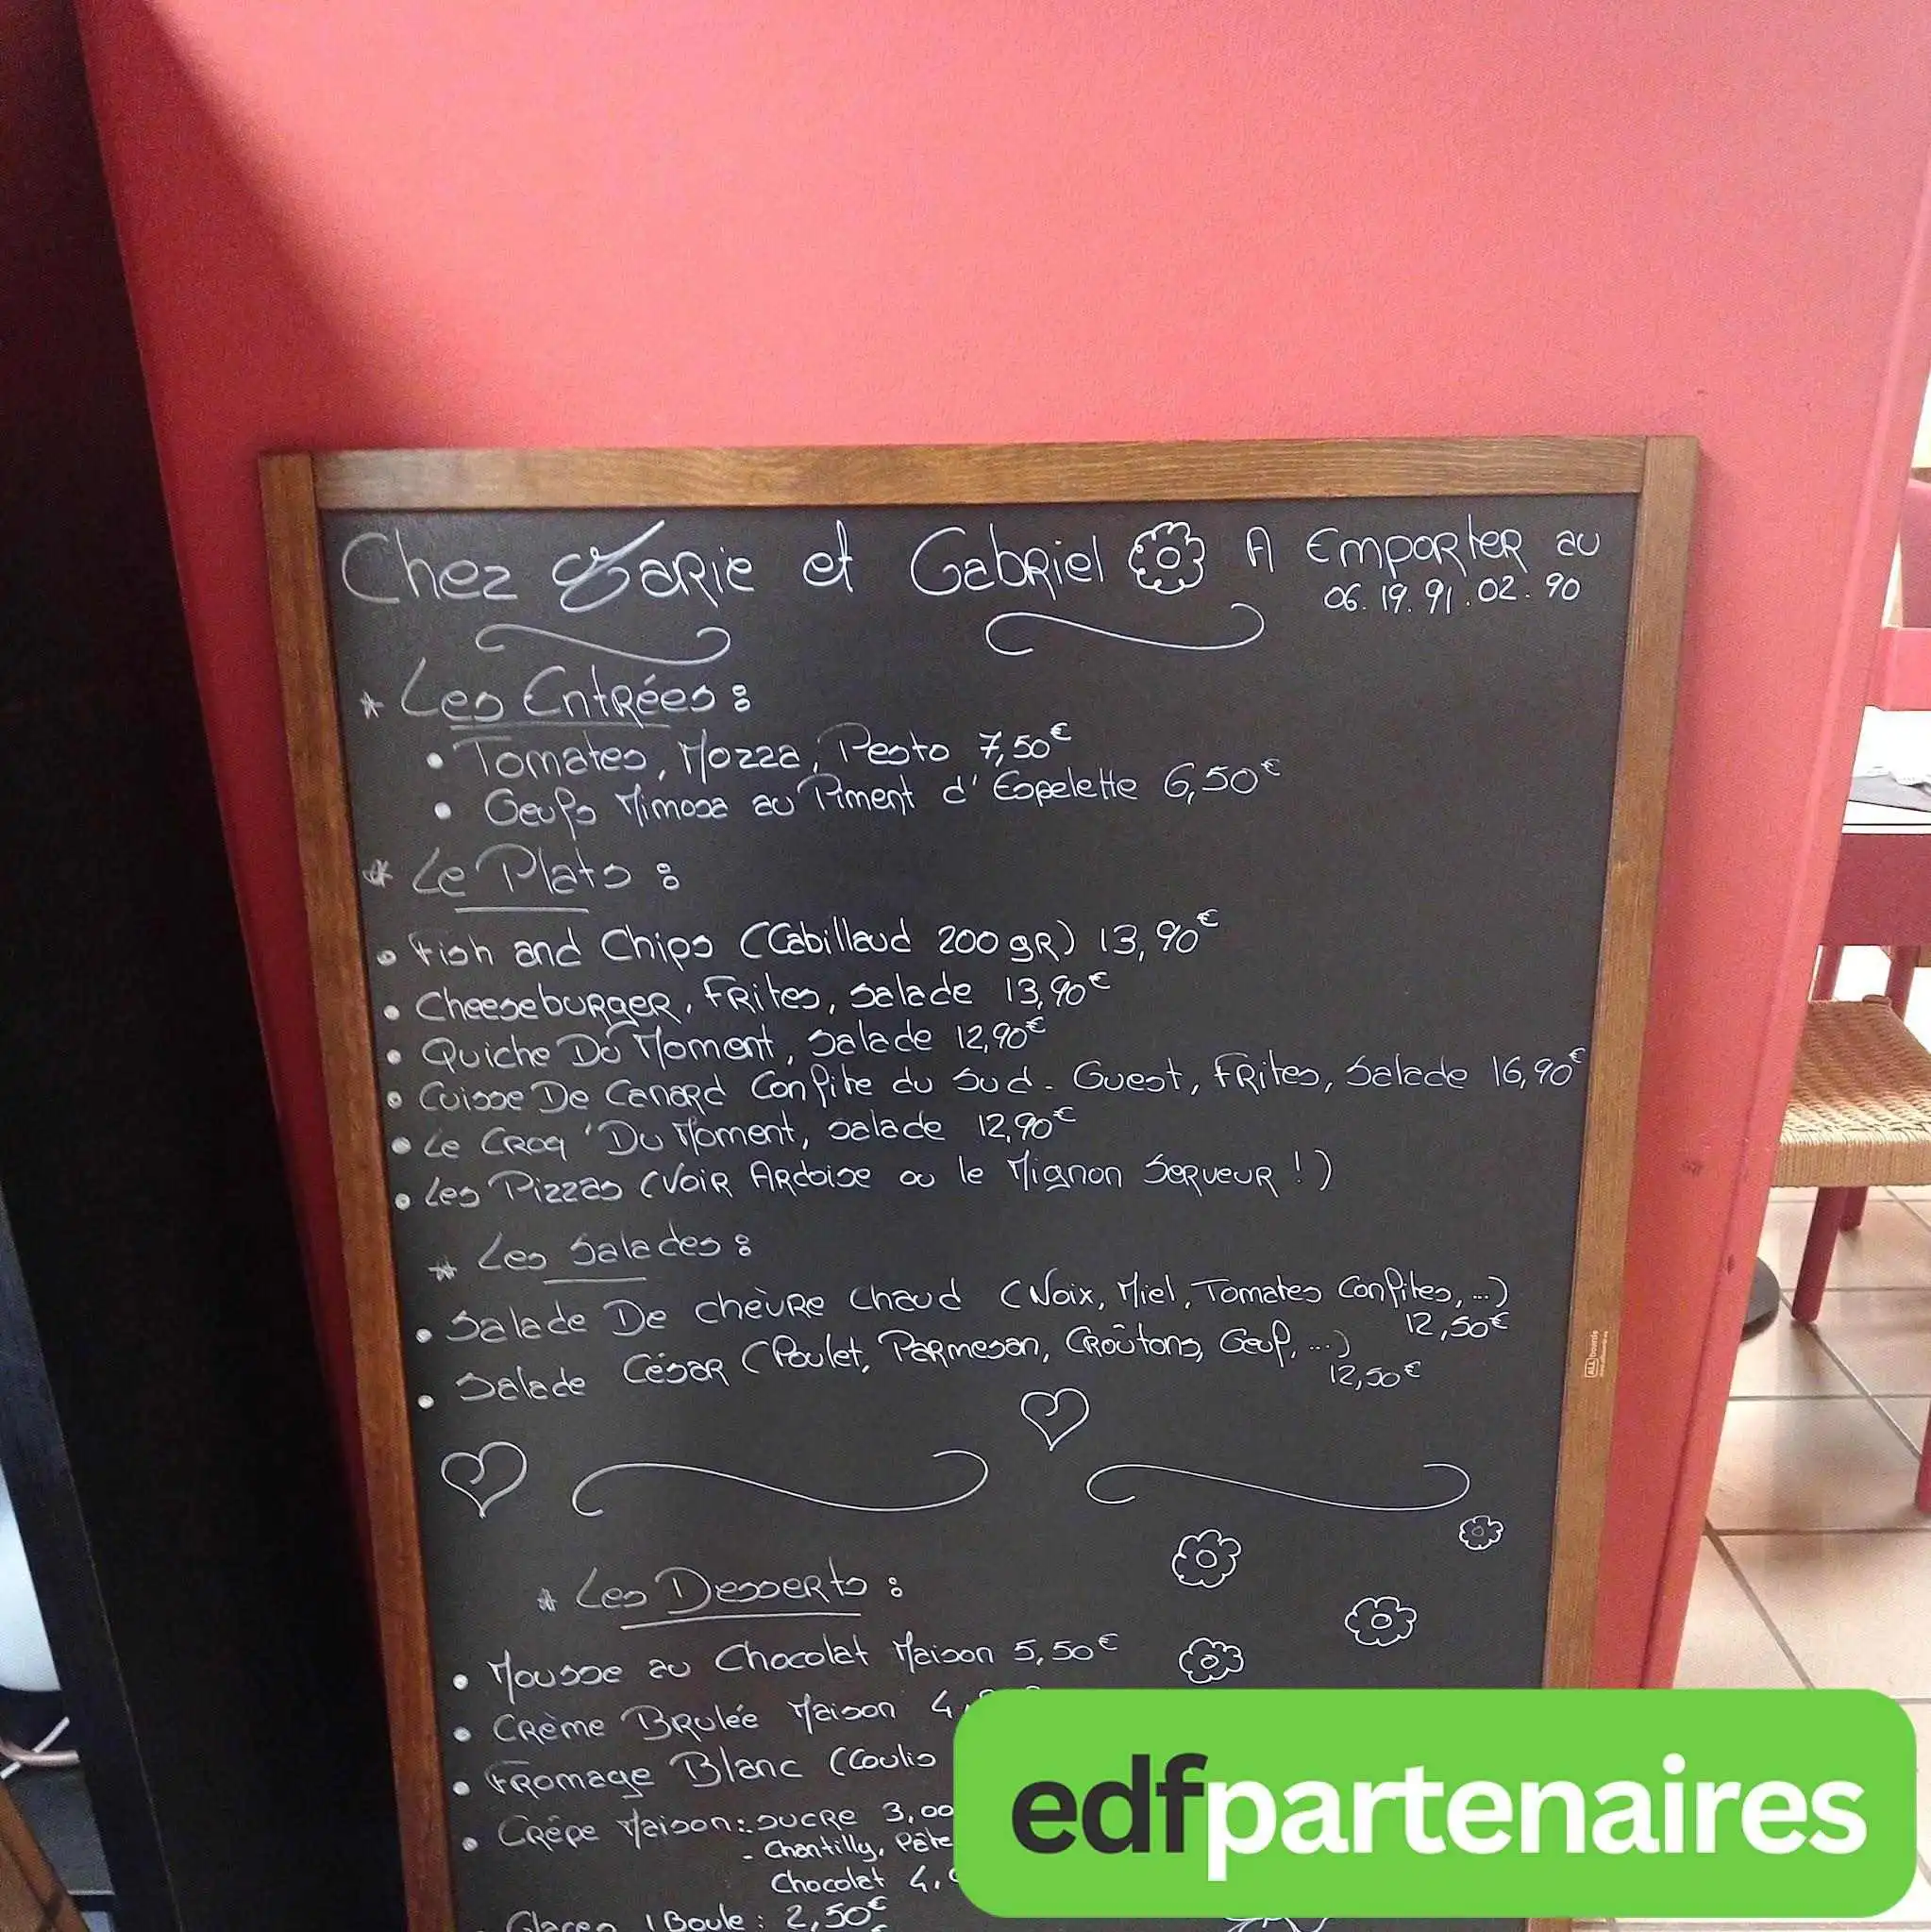 Chez Marie et Gabriel A Emporter au
06.19.91.02.90
* Les Entrées :
• Tomates, Mozza, Pesto 7,50€
• Oeufs Mimosa au Piment d'Espelette 6,50€
* Le Plats :
• Fish and Chips (Cabillaud 200 gr) 13,90€
• Cheeseburger, Frites, Salade 13,90€
• Quiche Du Moment, Salade 12,90€
• Cuisse De Canard Confite du Sud-Ouest, Frites, Salade 16,90€
• Le Croq' Du Moment, Salade 12,90€
• Les Pizzas (Voir Ardoise ou le Mignon Serveur !)
* Les Salades :
• Salade De chèvre Chaud (Noix, Miel, Tomates Confites, ...)
12,50€
• Salade César (Poulet, Parmesan, Croûtons, Oeuf, ...)
12,50€
* Les Desserts :
• Mousse au Chocolat Maison 5,50€
• Crème Brulée Maison 4,
• Fromage Blanc (Coulis
• Crêpe Maison : Sucre 3,00
- Chantilly, Pâte
Chocolat 4,
Glaces 1 Boule : 2,50€
edfpartenaires